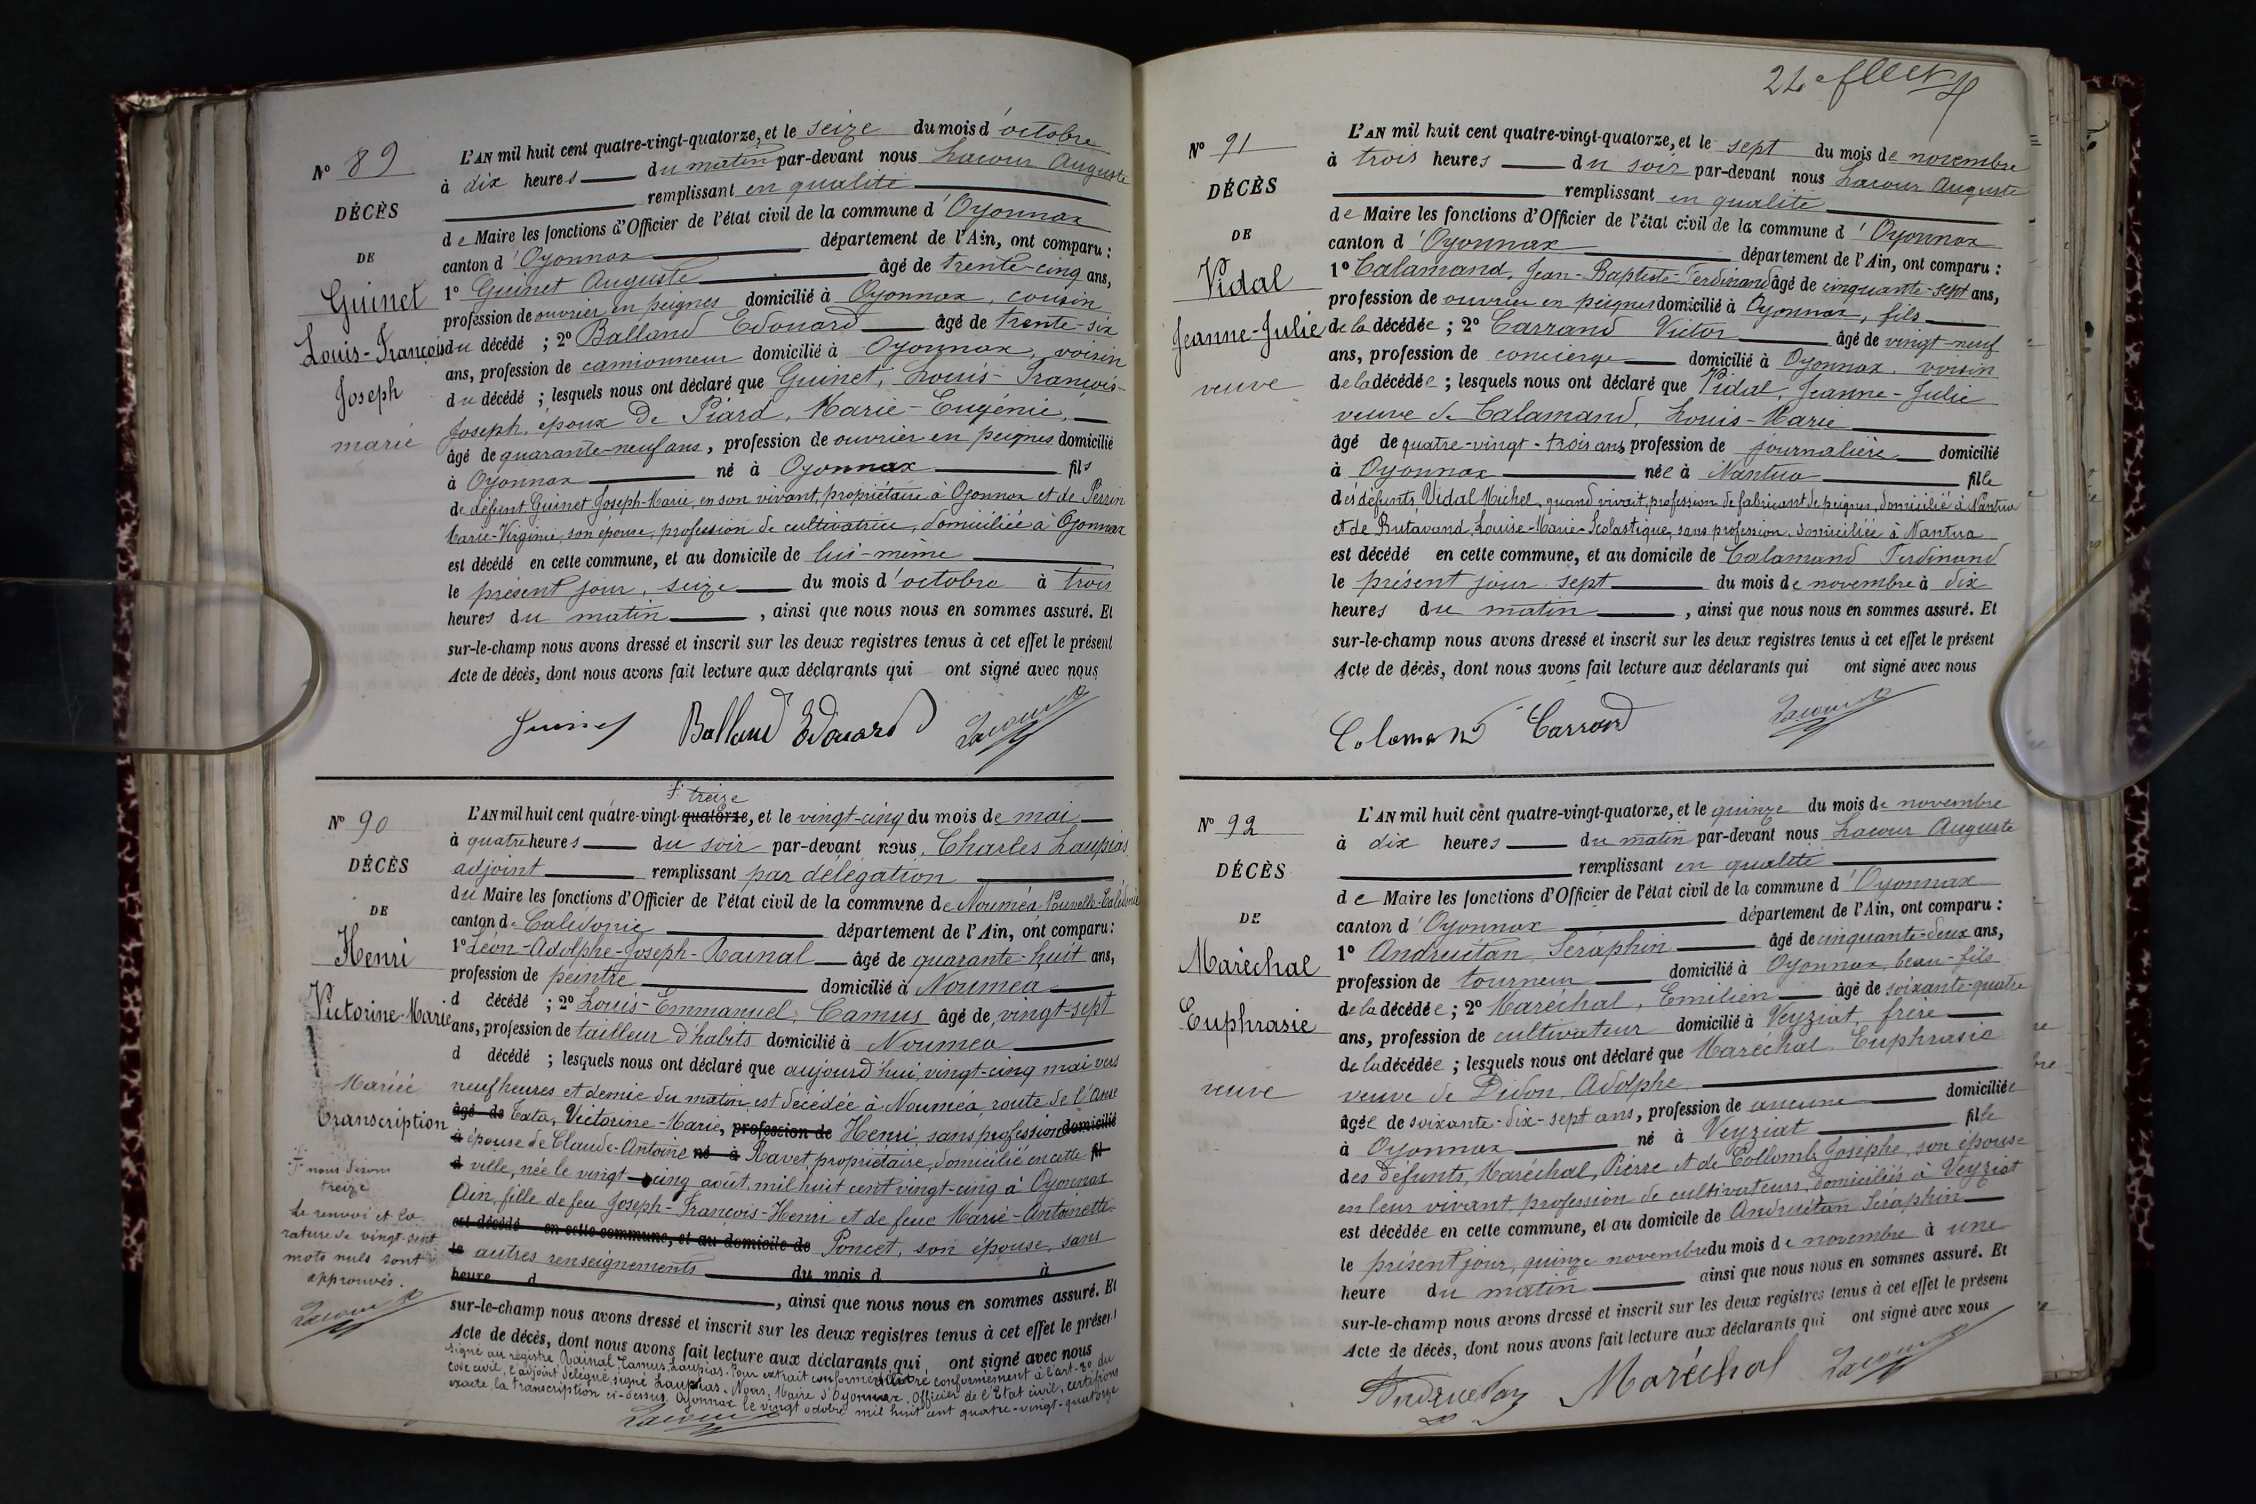 N° 89
DÉCÈS
DE
Guinet
Louis-François
Joseph
marié
L'AN mil huit cent quatre-vingt-quatorze, et le seize du mois d'octobre
à dix heures du matin par-devant nous Lacour Auguste
remplissant en qualité
de Maire les fonctions d'Officier de l'état civil de la commune d'Oyonnax
canton d'Oyonnax département de l'Ain, ont comparu :
1° Guinet Auguste âgé de trente-cinq ans,
profession de ouvrier en peignes domicilié à Oyonnax, cousin
du décédé ; 2° Balland Edouard âgé de trente-six
ans, profession de camionneur domicilié à Oyonnax, voisin
du décédé ; lesquels nous ont déclaré que Guinet, Louis-François-
Joseph, époux de Piard, Marie-Eugénie,
âgé de quarante-neuf ans, profession de ouvrier en peignes domicilié
à Oyonnax né à Oyonnax fils
de défunt Guinet Joseph-Marie, en son vivant, propriétaire à Oyonnax et de Perrin
Marie-Virginie, son épouse, profession de cultivatrice, domiciliée à Oyonnax
est décédé en cette commune, et au domicile de lui-même
le présent jour, seize du mois d'octobre à trois
heures du matin, ainsi que nous nous en sommes assuré. Et
sur-le-champ nous avons dressé et inscrit sur les deux registres tenus à cet effet le présent
Acte de décès, dont nous avons fait lecture aux déclarants qui ont signé avec nous
Guinet Balland Edouard Lacour
N° 90
DÉCÈS
DE
Henri
Victorine-Marie
Mariée
Transcription
nous disons
treize
Le renvoi et la
rature de vingt-sept
mots nuls sont
approuvés.
Lacour
treize
L'AN mil huit cent quatre-vingt-quatorze, et le vingt-cinq du mois de mai
à quatre heures du soir par-devant nous, Charles Laupias
adjoint remplissant par délégation
du Maire les fonctions d'Officier de l'état civil de la commune de Nouméa Nouvelle-Calédonie
canton de Calédonie département de l'Ain, ont comparu :
1° Léon-Adolphe-Joseph-Rainal âgé de quarante-huit ans,
profession de peintre domicilié à Nouméa
d décédé ; 2° Louis-Emmanuel, Camus âgé de vingt-sept
ans, profession de tailleur d'habits domicilié à Nouméa
d décédé ; lesquels nous ont déclaré que aujourd'hui, vingt-cinq mai vers
neuf heures et demie du matin, est décédée à Nouméa, route de l'Anse
âgé de Tata, Victorine-Marie, profession de Henri, sans profession domicilié
à épouse de Claude-Antoine né à Ravet, propriétaire, domicilié en cette fil
d ville, née le vingt-cinq août, mil huit cent vingt-cinq à Oyonnax
Ain, fille de feu Joseph-François-Henri et de feue Marie-Antoinette
est décédé en cette commune, et au domicile de Poncet, son épouse, sans
le autres renseignements du mois d à
heure d, ainsi que nous nous en sommes assuré. Et
sur-le-champ nous avons dressé et inscrit sur les deux registres tenus à cet effet le présent
Acte de décès, dont nous avons fait lecture aux déclarants qui ont signé avec nous
Signé au registre Rainal, Camus, Laupias. Pour extrait conforme conformément à l'art. 80 du
code civil, l'adjoint délégué, signé Laupias. Nous, Maire d'Oyonnax, Officier de l'Etat civil, certifions
exacte la transcription ci-dessus Oyonnax le vingt octobre mil huit cent quatre-vingt-quatorze
Lacour
N° 91
DÉCÈS
DE
Vidal
Jeanne-Julie
veuve
L'AN mil huit cent quatre-vingt-quatorze, et le sept du mois de novembre
à trois heures du soir par-devant nous Lacour Auguste
remplissant en qualité
de Maire les fonctions d'Officier de l'état civil de la commune d'Oyonnax
canton d'Oyonnax département de l'Ain, ont comparu :
1° Calamand, Jean-Baptiste-Ferdinand âgé de cinquante-sept ans,
profession de ouvrier en peignes domicilié à Oyonnax, fils
de la décédée ; 2° Carrand Victor âgé de vingt-neuf
ans, profession de concierge domicilié à Oyonnax, voisin
de la décédée ; lesquels nous ont déclaré que Vidal, Jeanne-Julie
veuve de Calamand, Louis-Marie
âgé de quatre-vingt-trois ans, profession de journalière domicilié
à Oyonnax née à Nantua fille
des défunts Vidal Michel, quand vivait, profession de fabricant de peignes, domicilié à Nantua
et de Butavand, Louise-Marie-Scolastique, sans profession, domiciliée à Nantua
est décédé en cette commune, et au domicile de Calamand Ferdinand
le présent jour sept du mois de novembre à dix
heures du matin, ainsi que nous nous en sommes assuré. Et
sur-le-champ nous avons dressé et inscrit sur les deux registres tenus à cet effet le présent
Acte de décès, dont nous avons fait lecture aux déclarants qui ont signé avec nous
Calamand Carrand Lacour
N° 92
DÉCÈS
DE
Maréchal
Euphrasie
veuve
L'AN mil huit cent quatre-vingt-quatorze, et le quinze du mois de novembre
à dix heures du matin par-devant nous Lacour Auguste
remplissant en qualité
de Maire les fonctions d'Officier de l'état civil de la commune d'Oyonnax
canton d'Oyonnax département de l'Ain, ont comparu :
1° Andruétan Séraphin âgé de cinquante-deux ans,
profession de tourneur domicilié à Oyonnax, beau-fils
de la décédée ; 2° Maréchal, Emilien âgé de soixante-quatre
ans, profession de cultivateur domicilié à Veyziat, frère
de la décédée ; lesquels nous ont déclaré que Maréchal Euphrasie
veuve de Didon, Adolphe
âgée de soixante-dix-sept ans, profession de aucune domiciliée
à Oyonnax né à Veyziat fille
des défunts, Maréchal, Pierre et de Collomb Josephe, son épouse
en leur vivant profession de cultivateurs, domiciliés à Veyziat
est décédée en cette commune, et au domicile de Andruétan Séraphin
le présent jour, quinze novembre du mois de novembre à une
heure du matin ainsi que nous nous en sommes assuré. Et
sur-le-champ nous avons dressé et inscrit sur les deux registres tenus à cet effet le présent
Acte de décès, dont nous avons fait lecture aux déclarants qui ont signé avec nous
Andruétan Maréchal Lacour